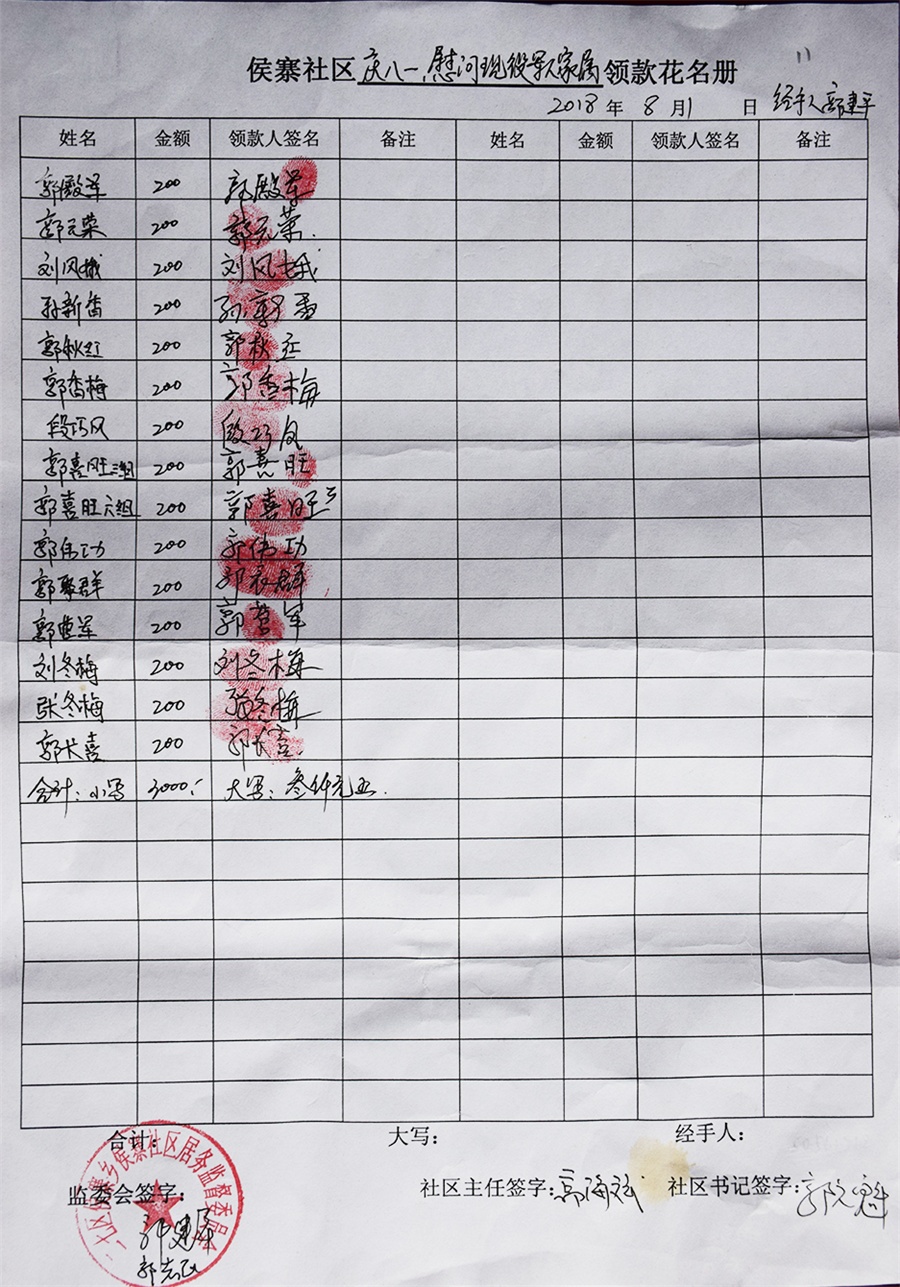 侯寨社区庆八一,慰问现役军人家属领款花名册
2018 年 8 月1 日 经手人
姓名 金额 领款人签名 备注 姓名 金额 领款人签名 备注
郭殿军 200 郭殿军
郭元荣 200 郭元荣
刘风娥 200 刘风娥
孙新香 200 孙新香
郭秋红 200 郭秋红
郭香梅 200 郭香梅
段巧风 200 段巧凤
郭喜旺三组 200 郭喜旺
郭喜旺六组 200 郭喜旺
郭伟功 200 郭伟功
郭聚群 200 郭聚群
200
刘冬梅 200 刘冬梅
张冬梅 200 张冬梅
郭长喜 200 郭长喜
合计:小写 3000: 大写:叁仟元正.
合计: 大写: 经手人:
二七区侯寨乡侯寨社区居务监督委员会
监委会签字: 社区主任签字: 社区书记签字: